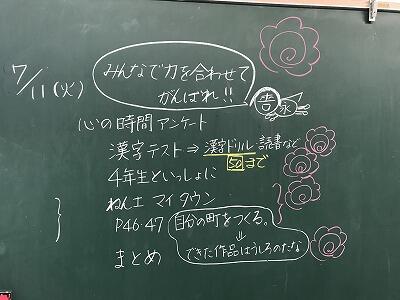 7/11(火)
みんなで力を合わせて
がんばれ!!
吉永
心の時間アンケート
漢字テスト⇒漢字ドリル 読書など
50まで
4年生といっしょに
ねん土 マイタウン
P46・47 自分の町をつくる。
⇓
できた作品はうしろのたなへ
まとめ